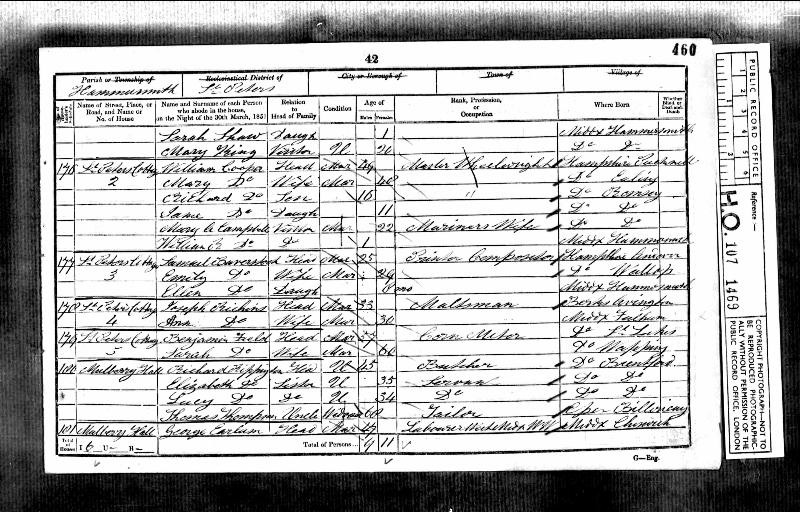 460
42
Parish or Township of
Ecclesiastical District of
City or Borough of
Town of
Village of
Hammersmith St Peters
Name of Street, Place, or Road, and Name or No. of House
Name and Surname of each Person who abode in the house, on the Night of the 30th March, 1851
Relation to Head of Family
Condition
Age of
Males Females
Rank, Profession, or Occupation
Where Born
Whether Blind, or Deaf and Dumb
Sarah Shaw Daugr 1 Middx Hammersmith
Mary King Visitor U 26 Do Do
176 St Peters Cottg William Cooper Head Mar 49 Master Wheelwright Hampshire
2 Mary Do Wife Mar 40 Do
Richard Do Son 16 " Do
Jane Do Daugh 11 Do Do
Mary A Campbell Visitor Mar 22 Mariners Wife Do Do
William Do Do 1 Middx Hammersmith
177 St Peters Cottgs Samuel Head Mar 25 Printer Compositor Hampshire
3 Emily Do Wife Mar 29 Do Wallop
Ellen Do Daugh 6 mo Middx Hammersmith
178 St Peters Cottg Joseph Head Mar 33 Maltsman Berks
4 Ann Do Wife Mar 30 Middx Fulham
179 St Peters Cottg Benjamin Field Head Mar 57 Corn Meter Do St Lukes
5 Sarah Do Wife Mar 60 Do Wapping
180 Mulberry Hall Richard Hea U 45 Butcher Do Brentford
Elizabeth Do Sister U 35 Servant Do Do
Lucy Do Do U 34 Do Do Do
Thomas Thompson Uncle Widower 60 Tailor Billericay
181 Mulberry Hall George Head Mar 49 Labourer West Middx WW Middx Chiswick
Total of Houses I 6 U B
Total of Persons 9 11
G—Eng.
PUBLIC RECORD OFFICE
Reference :—
H.O. 107 1469
COPYRIGHT PHOTOGRAPH—NOT TO BE REPRODUCED PHOTOGRAPHICALLY WITHOUT PERMISSION OF THE PUBLIC RECORD OFFICE, LONDON